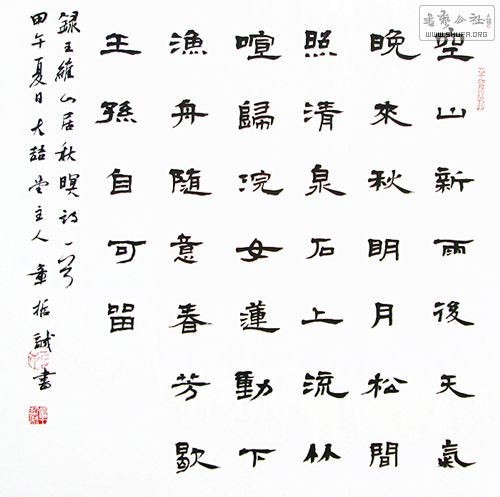 空山新雨後天氣
晚來秋明月松間
照清泉石上流竹
喧歸浣女蓮動下
漁舟隨意春芳歇
王孫自可留
錄王維山居秋暝詩一首
甲午夏日大喆堂主人童誠書
書藝公社
WWW.SHUFA.ORG